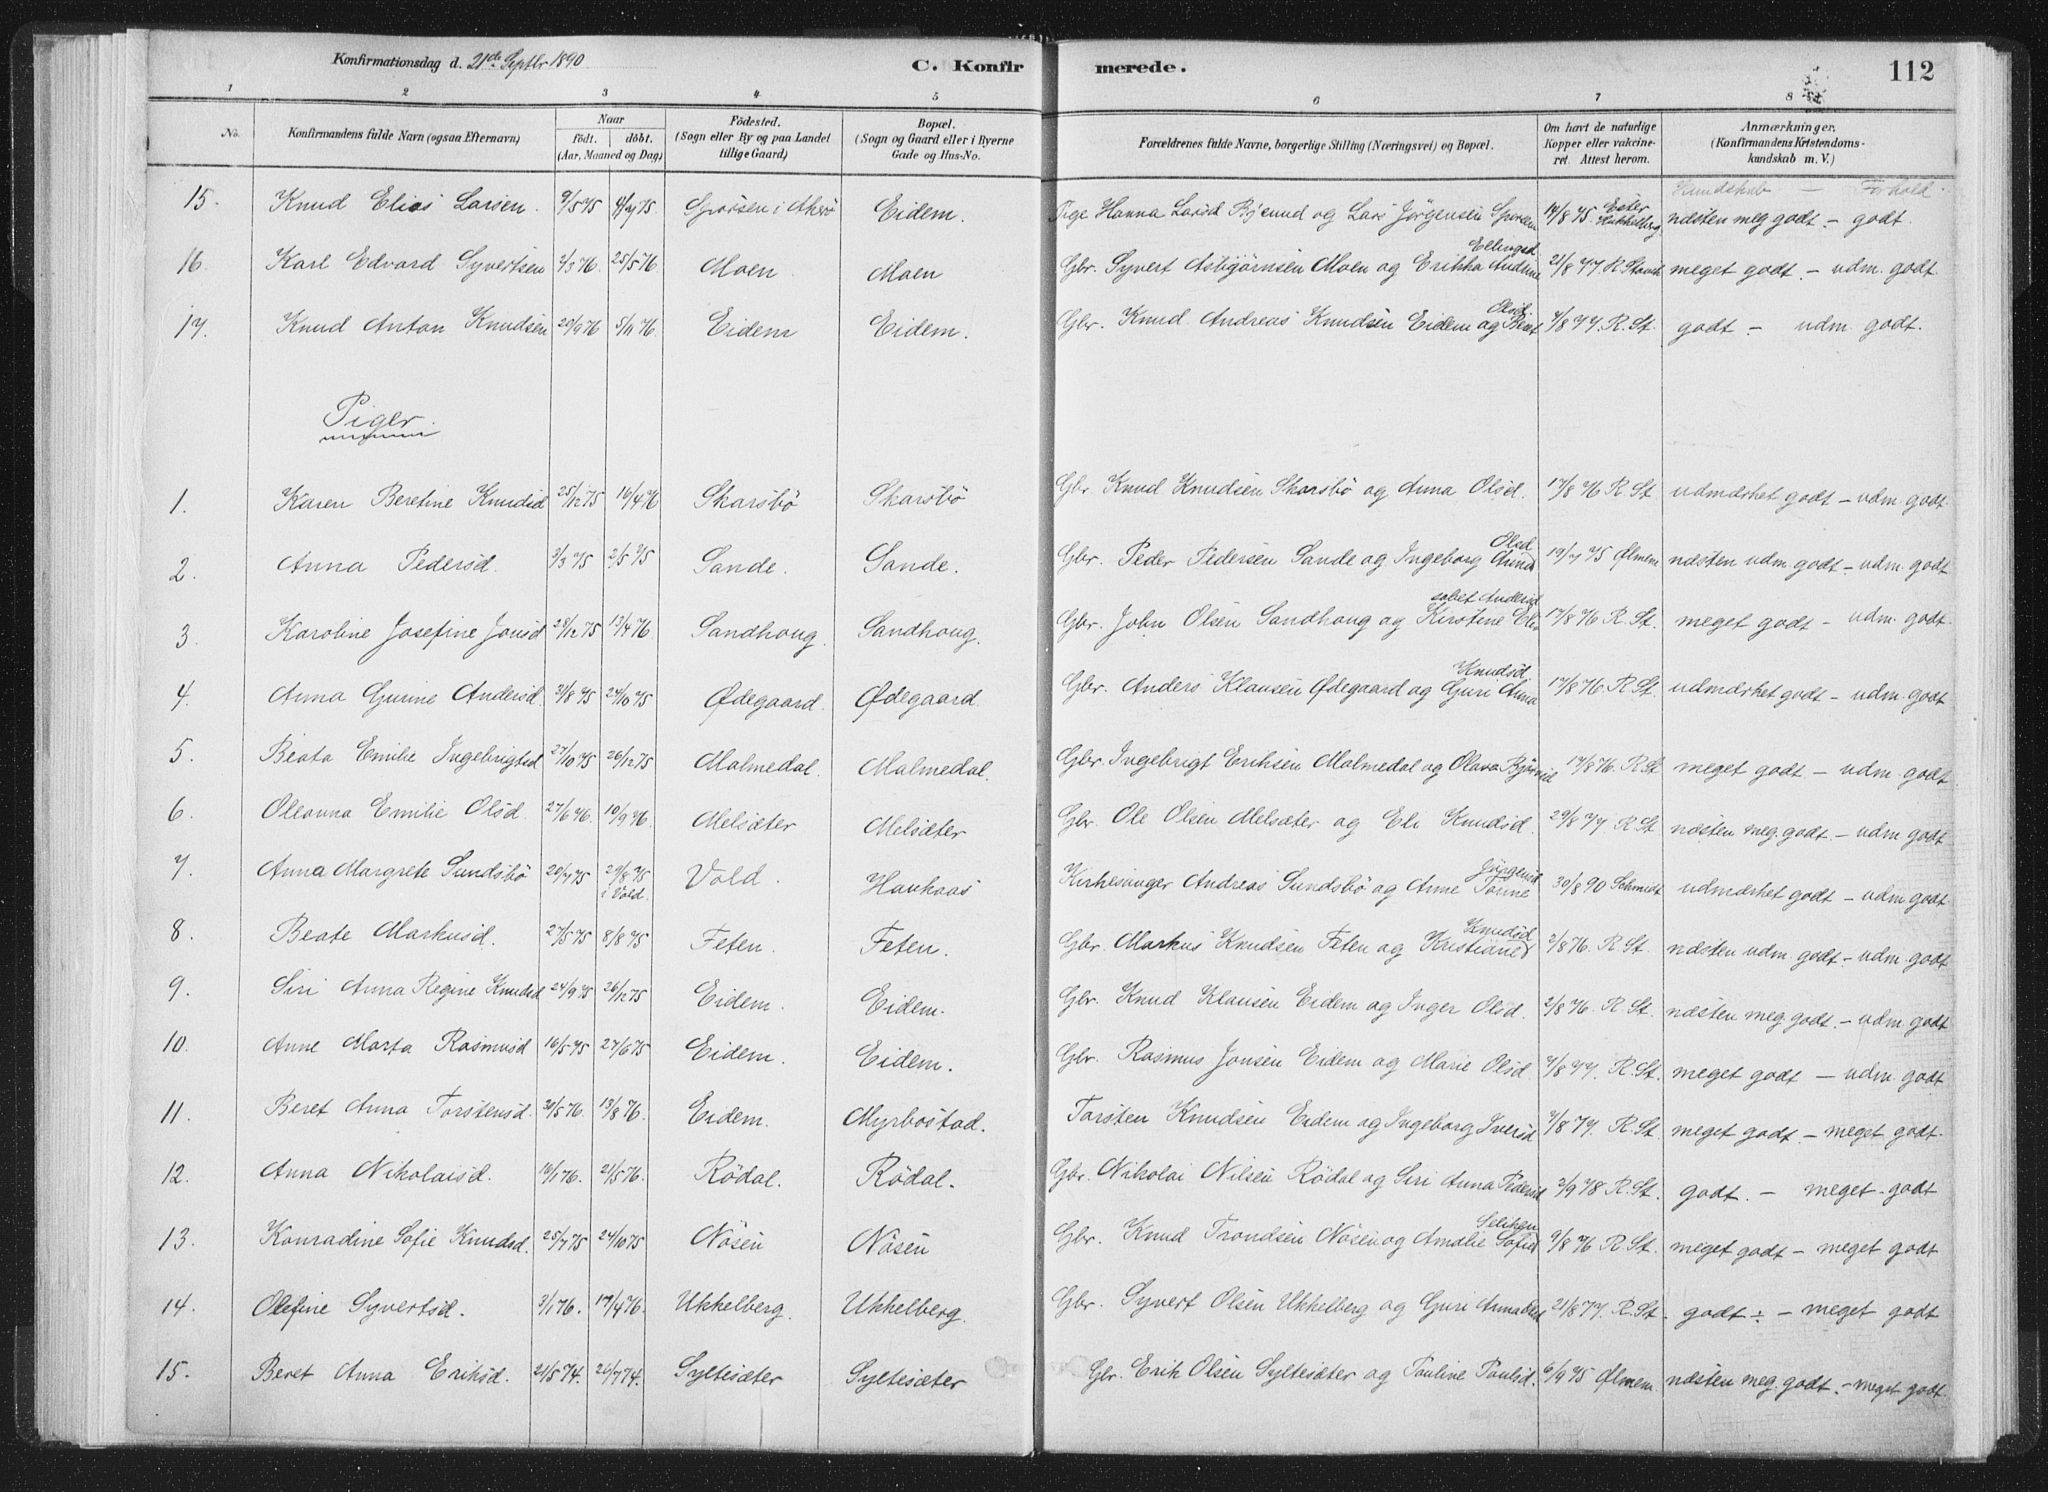 Konfirmationsdag d. 21de Septbr 1890 C. Konfirmerede. 112
1 2 3 4 5 6 7 8
No. Konfirmandens fulde Navn (ogsaa Efternavn) Naar födt. döbt. (Aar, Maaned og Dag) Födested. (Sogn eller By og paa Landet tillige Gaard) Bopæl. (Sogn og Gaard eller i Byerne Gade og Hus-No. Forældrenes fulde Navne, borgerlige Stilling (Næringsvei) og Bopæl. Om havt de naturlige Kopper eller vakcineret. Attest herom. Anmærkninger. (Konfirmandens Kristendomskundskab m. V.)
Kundskab — Forhold.
15. Knud Elias Larsen. 9/5 75 4/7 75 Sporsen i Akerö Eidem. Pige Hanna Larsd Bjerund og Lars Jørgensen Sporsem 14/8 75. næsten meg godt – godt.
16. Karl Edvard Syvertsen 2/3 76. 25/5 76. Moen Moen Gbr. Syvert Asbjørnsen Moen og Erikka Andrine Ellingsd. 21/8 77. R. Stavik meget godt. – udm. godt.
17. Knud Anton Knudsen 20/9 76 5/11 76. Eidem Eidem. Gbr. Knud Andreas Knudsen Eidem og Beret Olsd. 7/8 77. R. St. godt – udm. godt.
Piger.
1. Karen Beretine Knudsd 25/12 75 16/4 76 Skarsbö Skarsbö Gbr. Knud Knudsen Skarsbö og Anna Olsd. 17/8 76 R. St. udmærket godt – udm. godt.
2. Anna Pedersd. 3/3 75 2/5 75 Sande. Sande. Gbr. Peder Pedersen Sande og Ingeborg Anna Olsd 19/7 75 Ølmem næsten udm. godt – udm. godt
3. Karoline Josefine Jonsd 28/12 75 13/4 76 Sandhoug. Sandhoug. Gbr. John Olsen Sandhoug og Kirstine Elisabet Andersd 17/8 76 R. St. meget godt – udm. godt.
4. Anna Gurine Andersd. 31/8 75 24/10 75 Ødegaard. Ødegaard. Gbr. Anders Klausen Ødegaard og Guri Anna Knudsd. 17/8 76 R. St. udmærket godt – udm. godt
5. Beata Emilie Ingebrigtsd 27/10 75 26/12 75 Malmedal. Malmedal. Gbr. Ingebrigt Eriksen Malmedal og Olava Bjørnsd 17/8 76. R. St. meget godt – udm. godt.
6. Oleanna Emilie Olsd. 27/6 76. 10/9 76. Melsæter Melsæter Gbr. Ole Olsen Melsæter og Eli Knudsd. 29/8 77. R. St. næsten meg. godt. – udm. godt
7. Anna Margrete Sundsbö 20/7 75 29/8 75 i Vold. Vold. Haukaas Kirkesanger Andreas Sundsbö og Anne Tonne Jörgensd. 30/8 90 Schmidt udmærket godt – udm. godt.
8. Beate Markusd. 27/5 75 8/8 75 Feten. Feten. Gbr. Markus Knudsen Feten og Kristiane Knudsd 2/8 76. R. St. næsten udm. godt. – udm. godt
9. Siri Anna Regine Knudsd 24/9 75 26/12 75 Eidem. Eidem. Gbr. Knud Klausen Eidem og Inger Olsd. 2/8 76. R. St. næsten meg. godt. – udm. godt
10. Anne Marta Rasmusd 16/5 75 27/6 75 Eidem. Eidem. Gbr. Rasmus Jonsen Eidem og Marie Olsd. 7/8 77. R. St. meget godt – udm. godt
11. Beret Anna Torstensd. 30/5 76. 13/8 76. Eidem. Myrbostad. Torsten Knudsen Eidem og Ingeborg Iversd 7/8 77. R. St. meget godt. – meget godt.
12. Anna Nikolaisd. 16/1 76. 21/5 76. Rödal. Rödal. Gbr. Nikolai Nilsen Rödal og Siri Anna Pedersd 2/9 78 R. St. godt. – meget godt
13. Konradine Sofie Knudsd. 25/7 75 24/10 75 Nösen Nösen Gbr. Knud Trondsen Nösen og Amalie Sofie 9/8 76 R. St. meget godt – meget godt
14. Olefine Syvertsd. 3/1 76. 17/4 76. Ukkelberg. Ukkelberg. Gbr. Syvert Olsen Ukkelberg og Guri Anna Olsd 21/8 77. R. St. godt ÷ – meget godt
15. Beret Anna Eriksd. 21/5 74. 26/7 74. Syltesæter Syltesæter Gbr. Erik Olsen Syltesæter og Pauline Paulsd. 6/9 75 Ølmem næsten meg. godt. – meget godt.